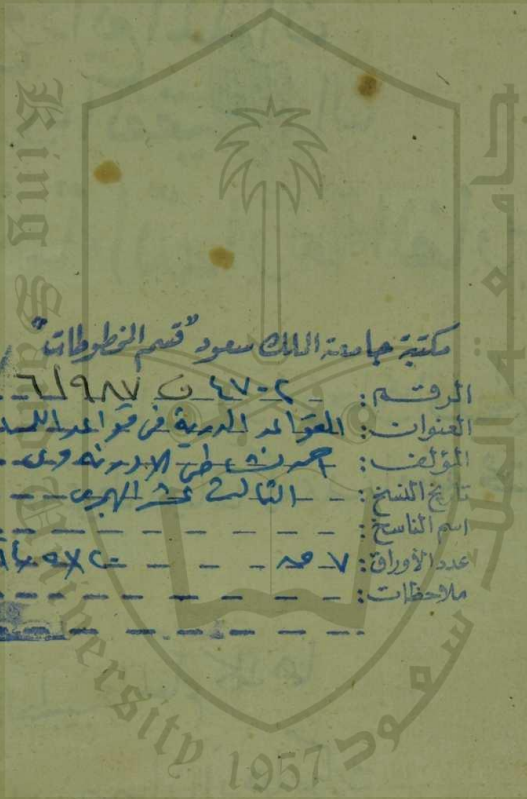 مكتبة جامعة الملك سعود "قسم المخطوطات"
الرقم: ٤٧٠٢ ف ٦/٩٨٧
العنوان: القواعد الدرية في قواعد
المؤلف: احمد
تاريخ النسخ: الثالث عشر الهجري
اسم الناسخ:
عدد الأوراق: ٧
ملاحظات:
King Saud University
1957
جامعة الملك سعود